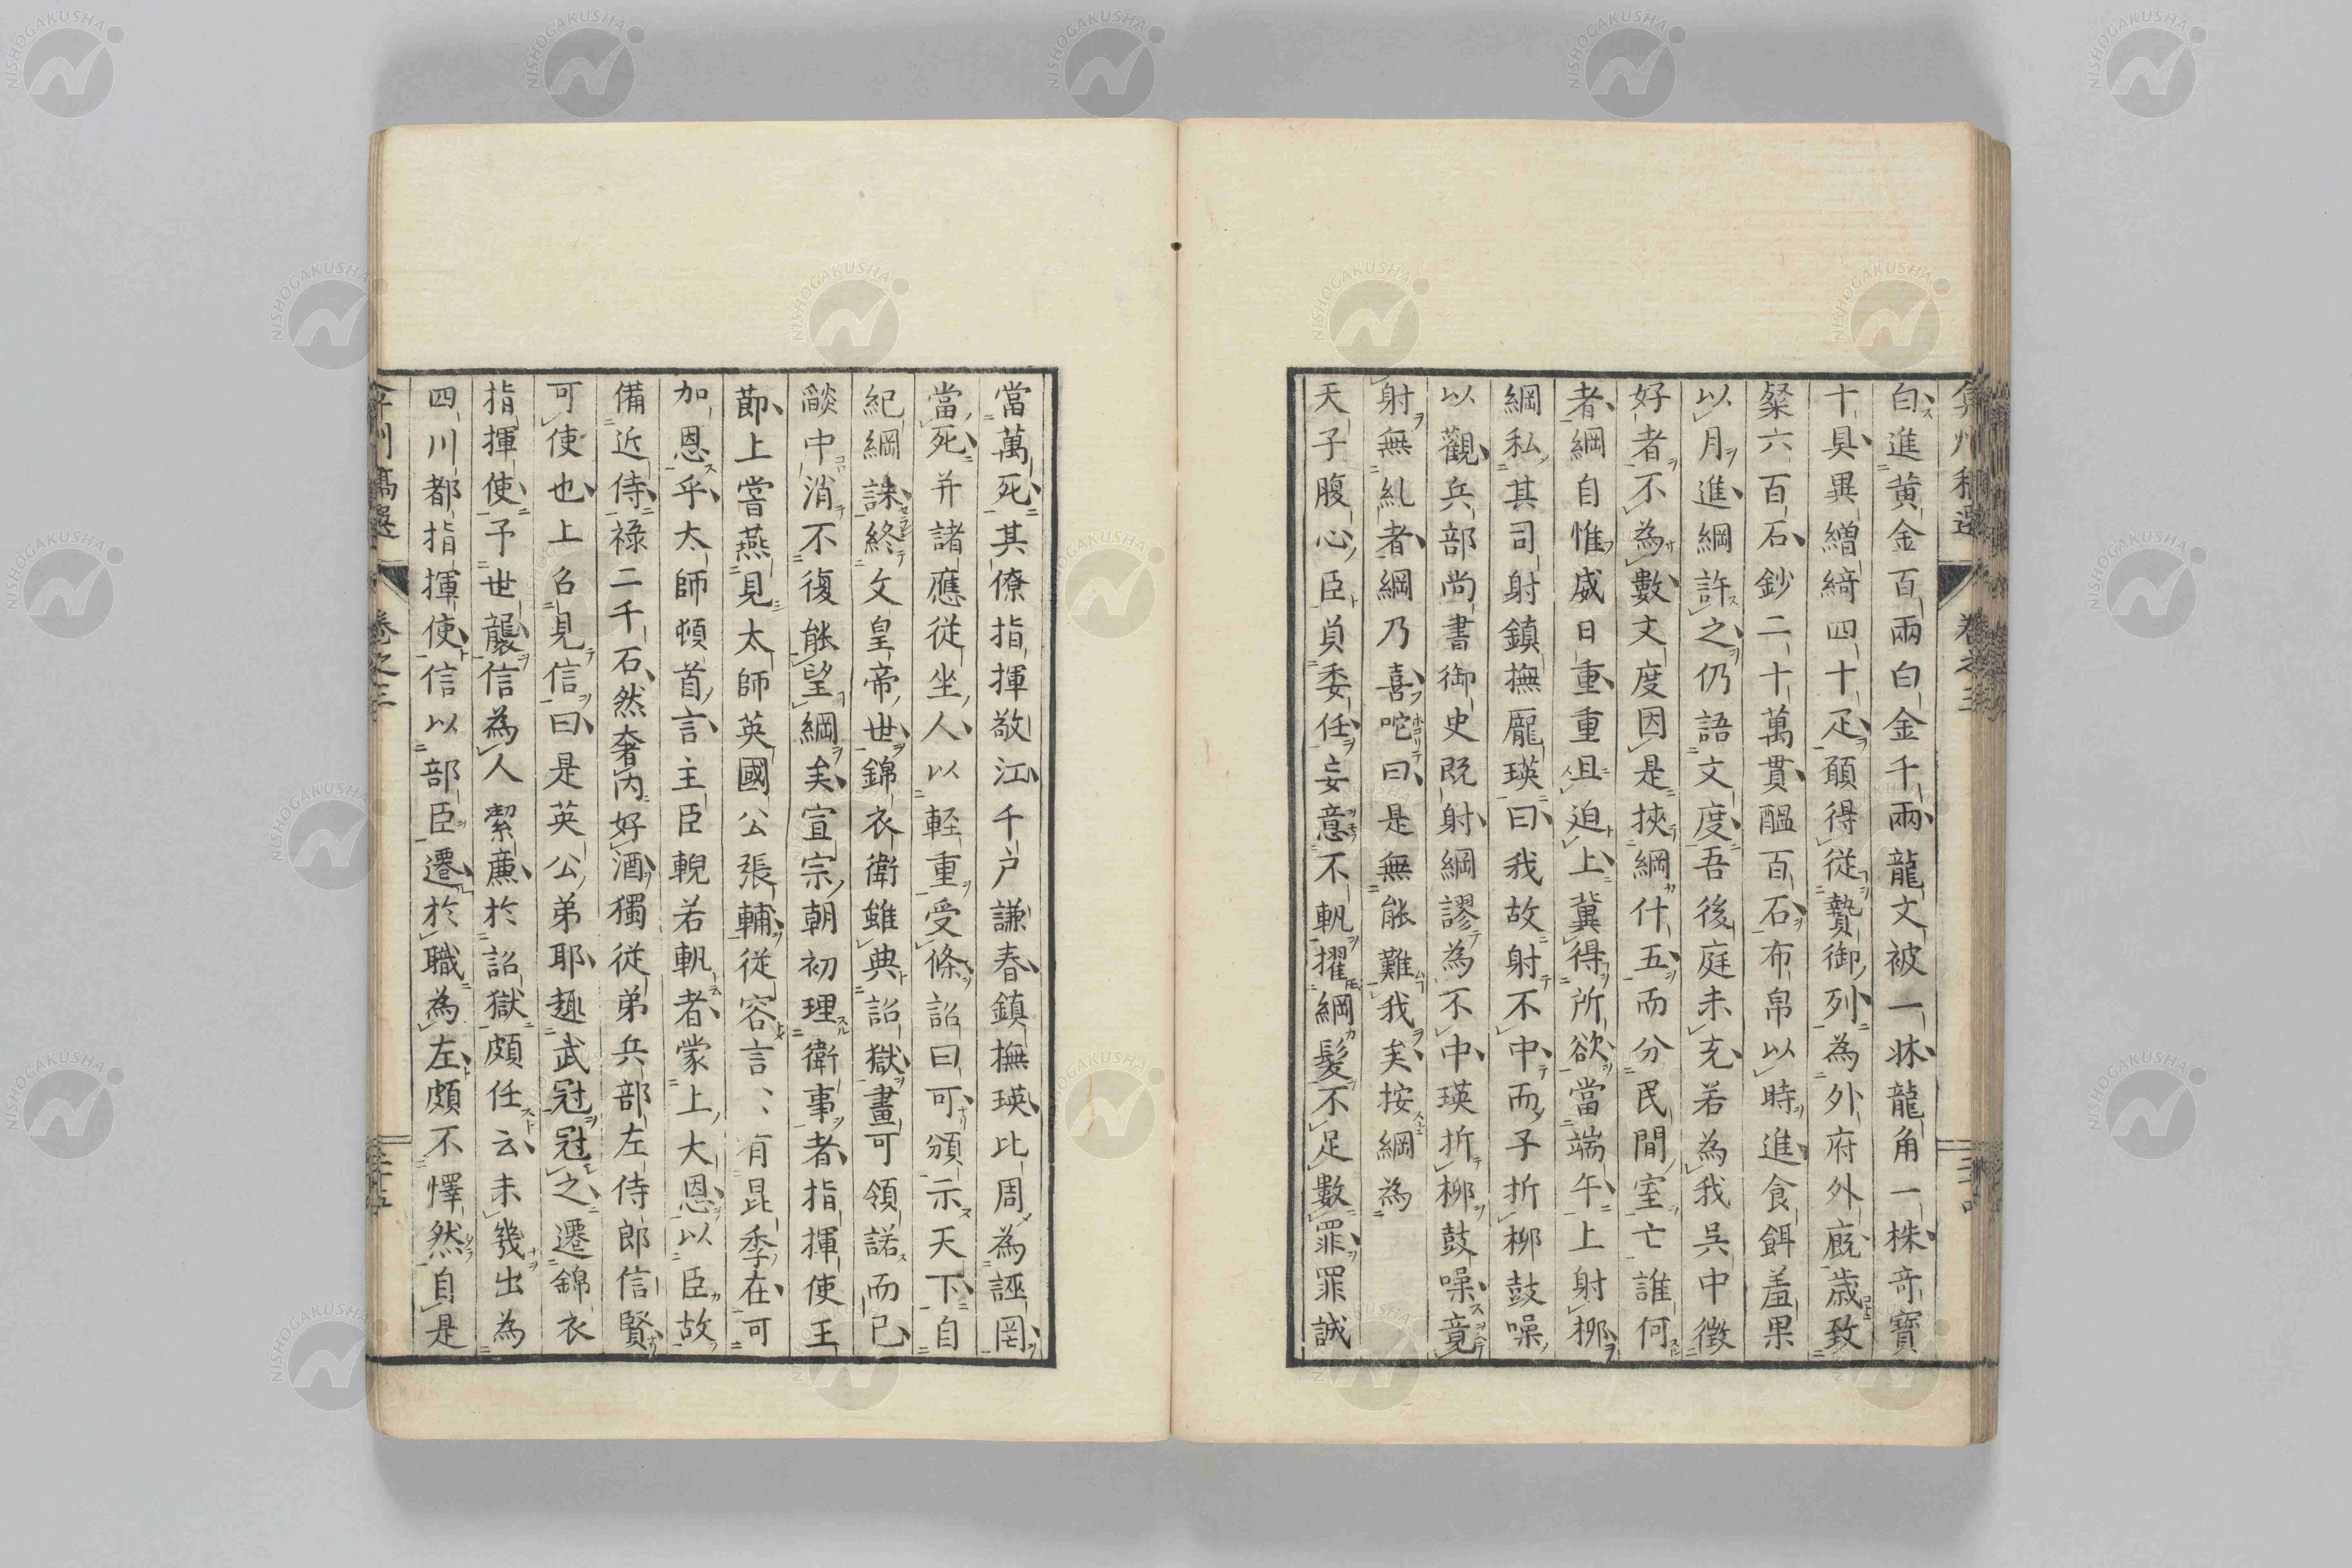 弇州稿選 卷之三 三十四
白進黄金百兩白金千兩龍文被一牀龍角一株奇寶
十具異繒綺四十疋願得從贄御列為外府外廐歳致
粲六百石鈔二十萬貫醖百石布帛以時進食餌羞果
以月進綱許之仍語文度吾後庭未充若為我呉中徴
好者不為數文度因是挾綱什五而分民間室亡誰何
者綱自惟威日重重且迫上冀得所欲當端午上射柳
綱私其司射鎮撫龐瑛曰我故射不中而子折柳鼓噪
以觀兵部尚書御史既射綱謬為不中瑛折柳鼓噪竟
射無糺者綱乃喜咜曰是無能難我矣按綱為
天子腹心臣負委任妄意不軓擢綱髮不足數罪罪誠
當萬死其僚指揮敬江千户謙春鎮撫瑛比周為誣罔
當死并諸應從坐人以輕重受條詔曰可頒示天下自
紀綱誅終文皇帝世錦衣衛雖典詔獄畫可領諾而已
燄中消不復能望綱矣宣宗朝初理衛事者指揮使王
節上嘗燕見太師英國公張輔從容言、、有昆季在可
加恩乎太師頓首言主臣輗若軏者蒙上大恩以臣故
備近侍祿二千石然奢內好酒獨從弟兵部左侍郎信賢
可使也上召見信曰是英公弟耶趣武冠冠之遷錦衣
指揮使予世襲信為人潔廉於詔獄頗任云未幾出為
四川都指揮使信以部臣遷於職為左頗不懌然自是
弇州稿選 卷之三 三十五